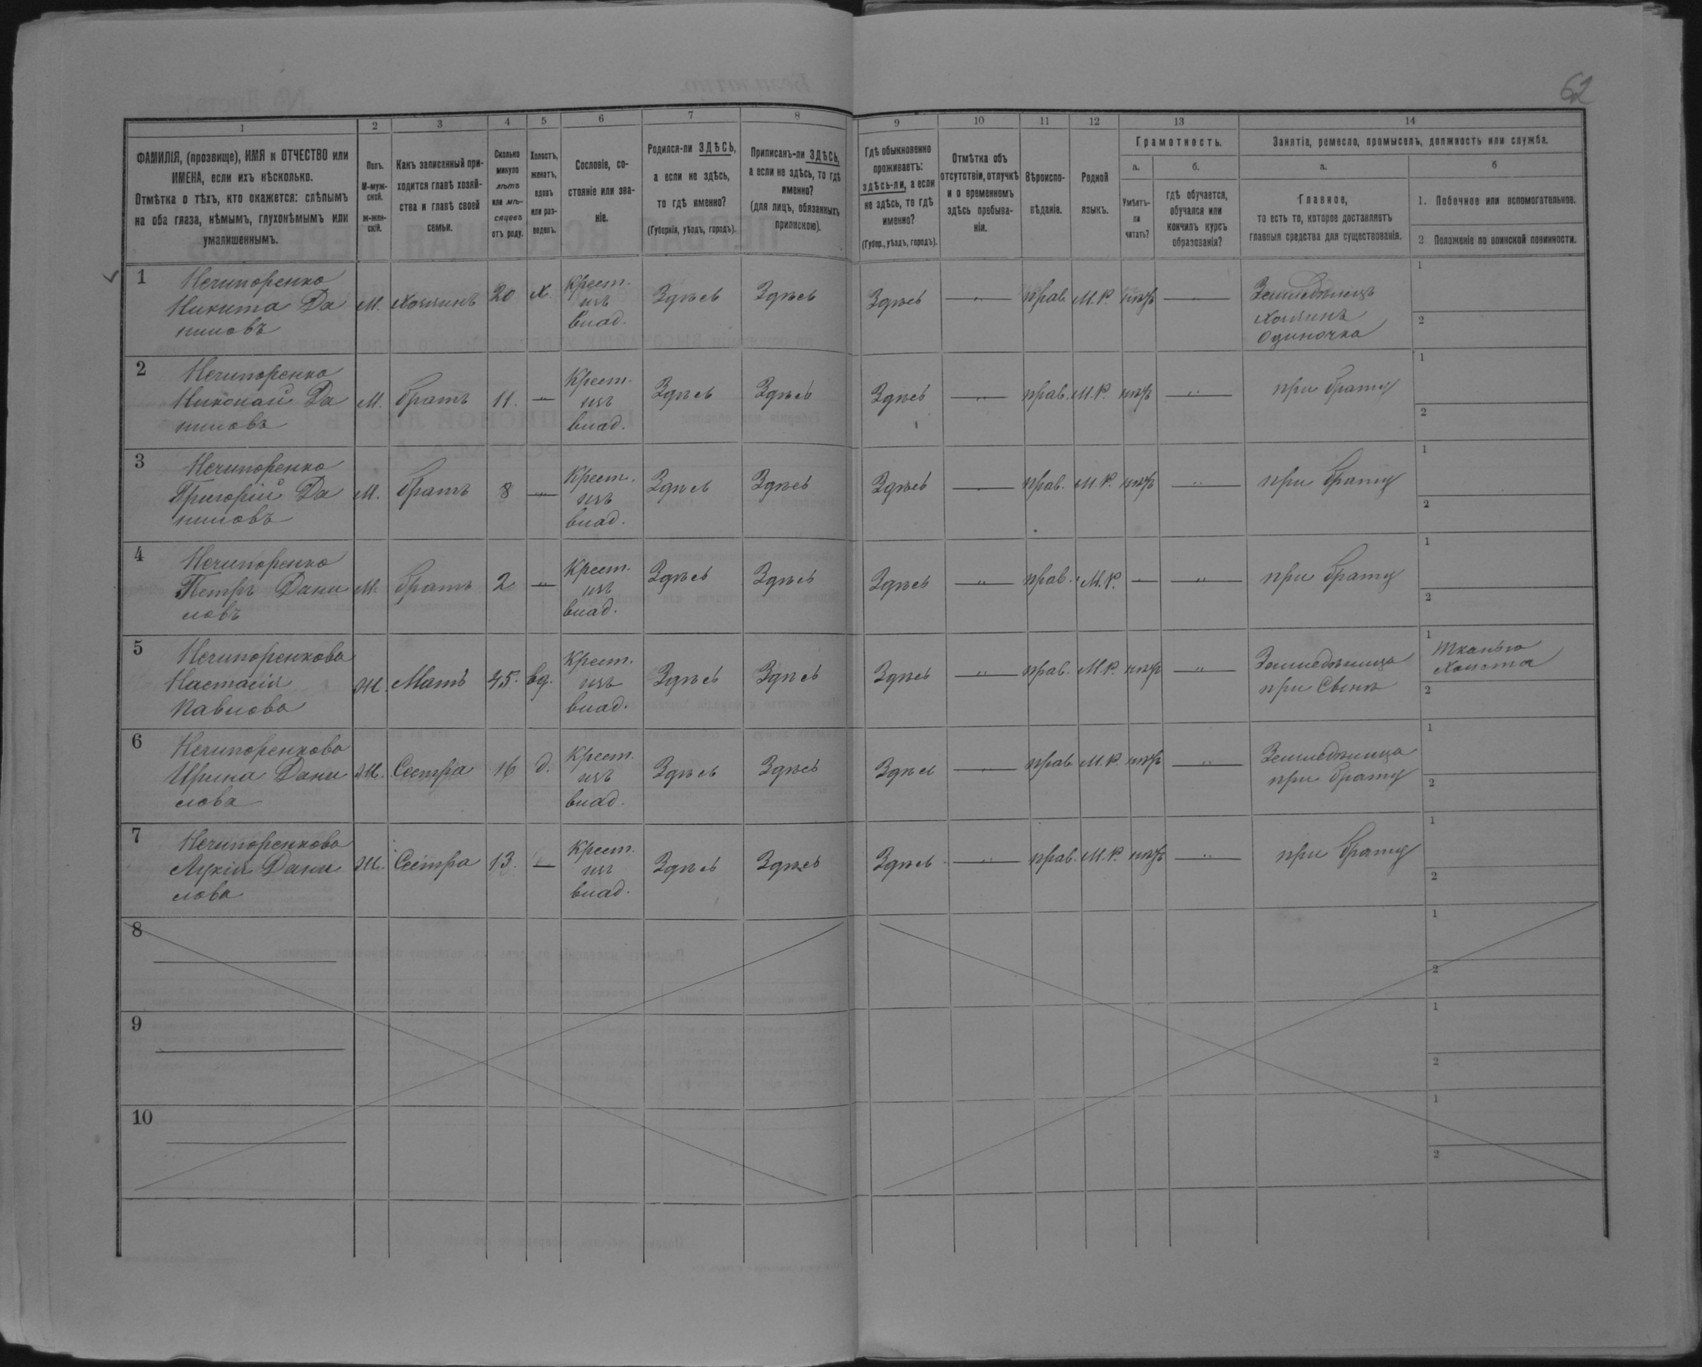 62
1 2 3 4 5 6 7 8 9 10 11 12 13 14
ФАМИЛІЯ, (прозвище), ИМЯ и ОТЧЕСТВО или
ИМЕНА, если ихъ нѣсколько.
Отмѣтка о тѣхъ, кто окажется: слѣпымъ
на оба глаза, нѣмымъ, глухонѣмымъ или
умалишеннымъ.
Полъ.
М-муж-
ской.
Ж-жен-
скій.
Какъ записанный при-
ходится главѣ хозяй-
ства и главѣ своей
семьи.
Сколько
минуло
лѣтъ
или мѣ-
сяцевъ
отъ роду.
Холостъ,
женатъ,
вдовъ
или раз-
веденъ.
Сословіе, со-
стояніе или зва-
ніе.
Родился-ли ЗДѢСЬ,
а если не здѣсь,
то гдѣ именно?
(Губернія, уѣздъ, городъ).
Приписанъ-ли ЗДѢСЬ,
а если не здѣсь, то гдѣ
именно?
(для лицъ, обязанныхъ
припискою).
Гдѣ обыкновенно
проживаетъ:
здѣсь-ли, а если
не здѣсь, то гдѣ
именно?
(Губер., уѣздъ, городъ).
Отмѣтка объ
отсутствіи, отлучкѣ
и о временномъ
здѣсь пребыва-
ніи.
Вѣроиспо-
вѣданіе.
Родной
языкъ.
Грамотность.
а.
Умѣетъ-
ли
читать?
б.
гдѣ обучается,
обучался или
кончилъ курсъ
образованія?
Занятіе, ремесло, промыселъ, должность или служба.
а.
Главное,
то есть то, которое доставляетъ
главныя средства для существованія.
б
1. Побочное или вспомогательное.
2 Положеніе по воинской повинности.
1 Нечипоренко
Никита Да
ниловъ
М. Хозяинъ 20 Х. Крест. изъ влад. Здѣсь Здѣсь Здѣсь — прав. М.Р. нѣтъ —
Земледѣлецъ
Хозяинъ
Одиночка
1
2
2 Нечипоренко
Николай Да
ниловъ
М. братъ 11. — Крест. изъ влад. Здѣсь Здѣсь Здѣсь — прав. М.Р. нѣтъ — при брату
1
2
3 Нечипоренко
Григорій Да
ниловъ
М. братъ 8 — Крест. изъ влад. Здѣсь Здѣсь Здѣсь — прав. М.Р. нѣтъ — при брату
1
2
4 Нечипоренко
Петръ Дани
ловъ
М. братъ 2 — Крест. изъ влад. Здѣсь Здѣсь Здѣсь — прав. М.Р. — — при брату
1
2
5 Нечипоренкова
Настасія
Павлова
Ж. Мать 45. вд. Крест. изъ влад. Здѣсь Здѣсь Здѣсь — прав. М.Р. нѣтъ —
Земледѣлица
при Сынѣ
1 Тканьё
Холста
2
6 Нечипоренкова
Ирина Дани
лова
Ж. Сестра 16 д. Крест. изъ влад. Здѣсь Здѣсь Здѣсь — прав. М.Р. нѣтъ —
Земледѣлица
при брату
1
2
7 Нечипоренкова
Лукія Дани
лова
Ж. Сестра 13. — Крест. изъ влад. Здѣсь Здѣсь Здѣсь — прав. М.Р. нѣтъ — при брату
1
2
8
1
2
9
1
2
10
1
2